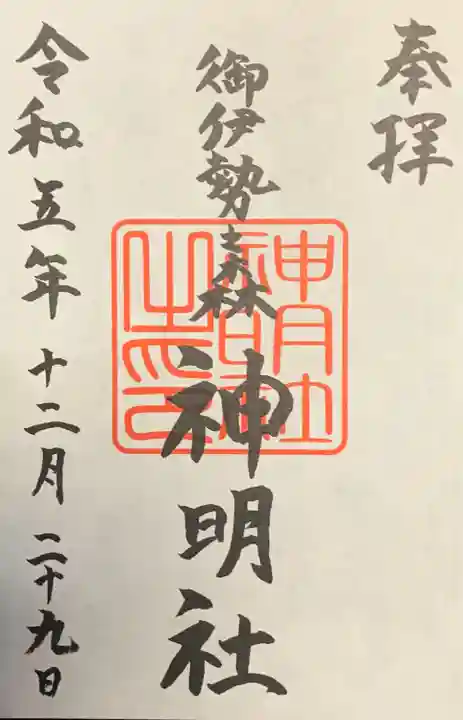 奉拝
御伊勢森
神明社
令和五年十二月二十九日